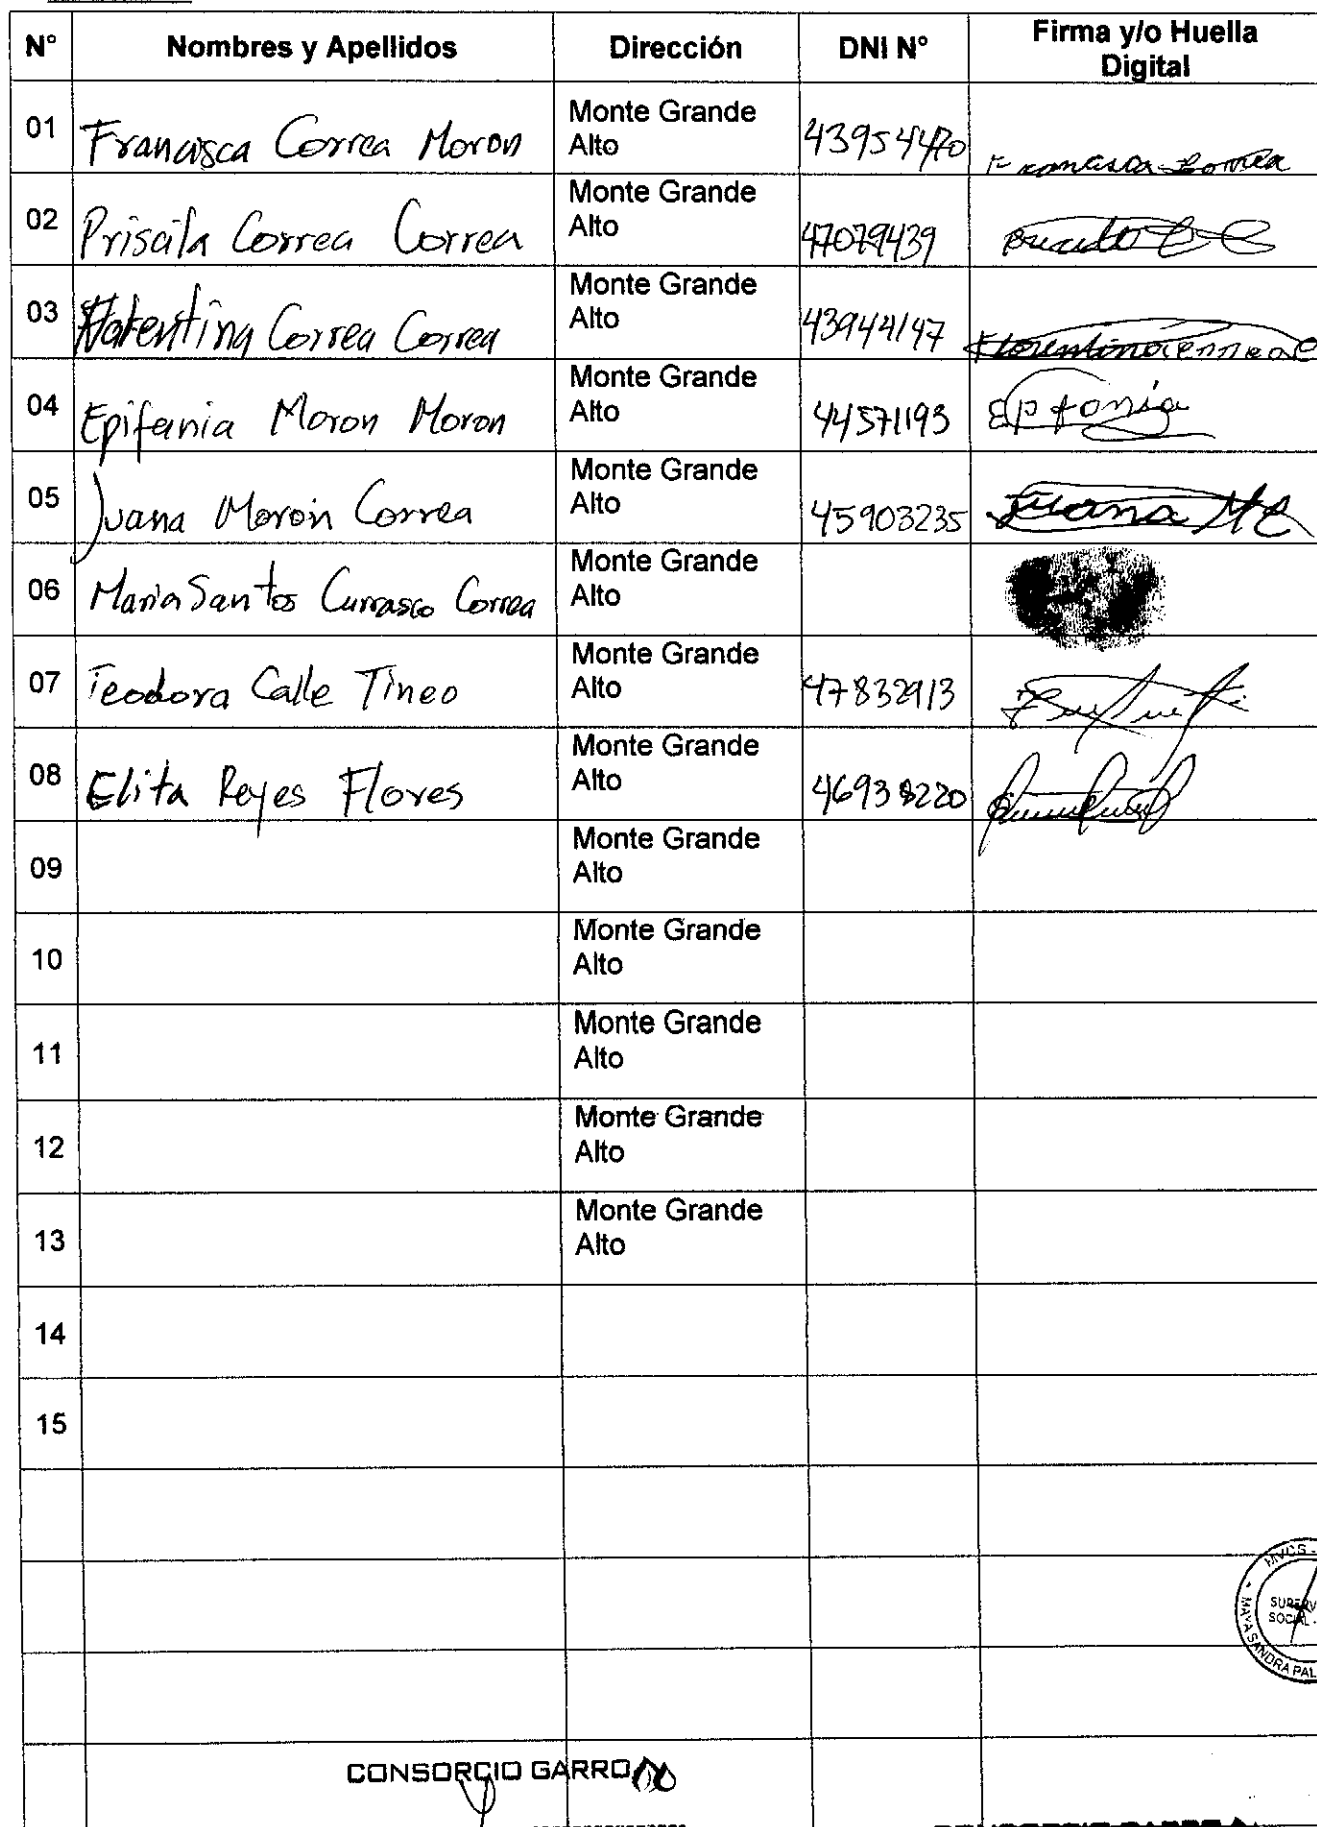 N° Nombres y Apellidos Dirección DNI N° Firma y/o Huella Digital
01 Francisca Correa Moron Monte Grande Alto 43954470 Francisca Correa
02 Priscila Correa Correa Monte Grande Alto 47079439
03 Correa Correa Monte Grande Alto 43944147
04 Epifania Moron Moron Monte Grande Alto 44571193
05 Juana Moron Correa Monte Grande Alto 45903235 Juana M C
06 Maria Santos Currasco Correa Monte Grande Alto
07 Teodora Calle Tineo Monte Grande Alto 47832913
08 Elita Reyes Flores Monte Grande Alto 46938220
09 Monte Grande Alto
10 Monte Grande Alto
11 Monte Grande Alto
12 Monte Grande Alto
13 Monte Grande Alto
14
15
MVCS -
SOCIAL -
MAYA SANDRA
CONSORCIO GARRO